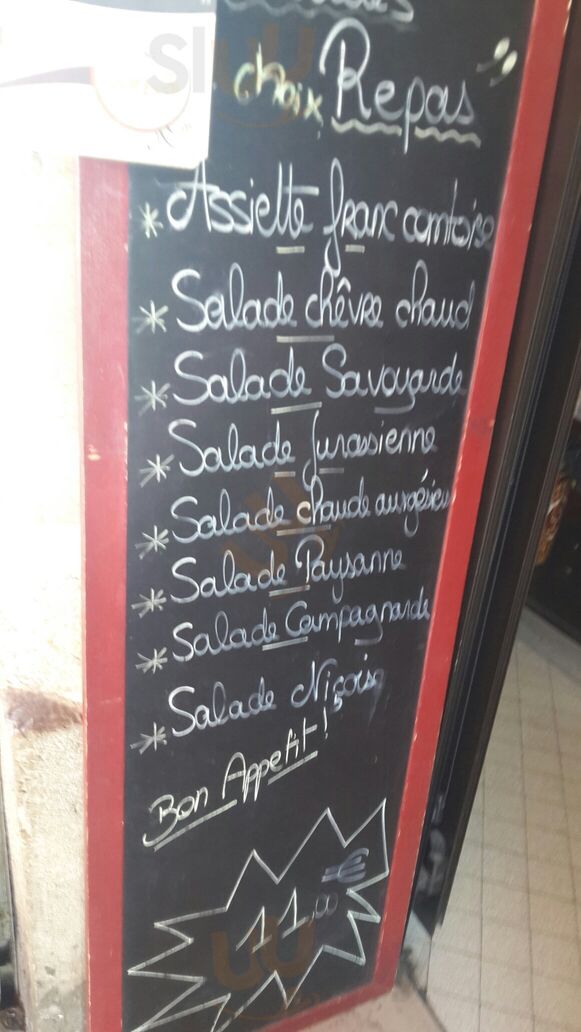 choix Repas
* Assiette franc comtoise
* Salade chêvre chaud
* Salade Savoyarde
* Salade Jurassienne
* Salade chaude
* Salade Paysanne
* Salade Campagnarde
* Salade Niçoise
Bon Appetit!
11,00 €